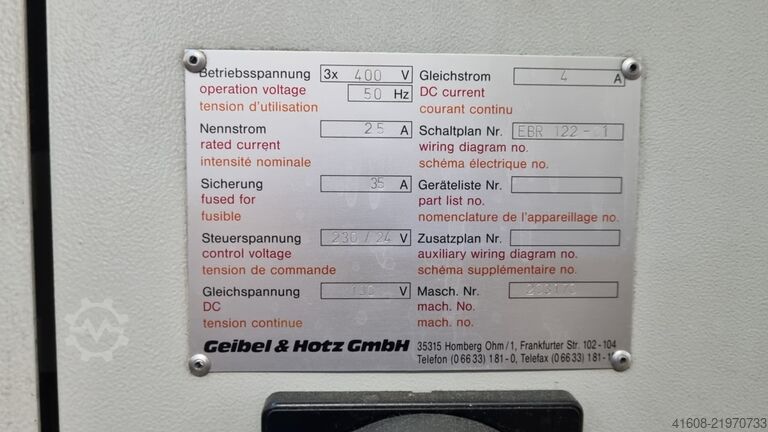 Betriebsspannung 3x 400 V Gleichstrom 4 A
operation voltage 50 Hz DC current
tension d'utilisation courant continu
Nennstrom 25 A Schaltplan Nr. EBR 122-
rated current wiring diagram no.
intensité nominale schéma électrique no.
Sicherung 35 A Geräteliste Nr.
fused for part list no.
fusible nomenclature de l'appareillage no.
Steuerspannung 230/24 V Zusatzplan Nr.
control voltage auxiliary wiring diagram no.
tension de commande schéma supplémentaire no.
Gleichspannung V Masch. Nr.
DC mach. No.
tension continue mach. no.
Geibel & Hotz GmbH 35315 Homberg Ohm/1, Frankfurter Str. 102-104
Telefon (0 66 33) 181-0, Telefax (0 66 33) 181-
41608-21970733